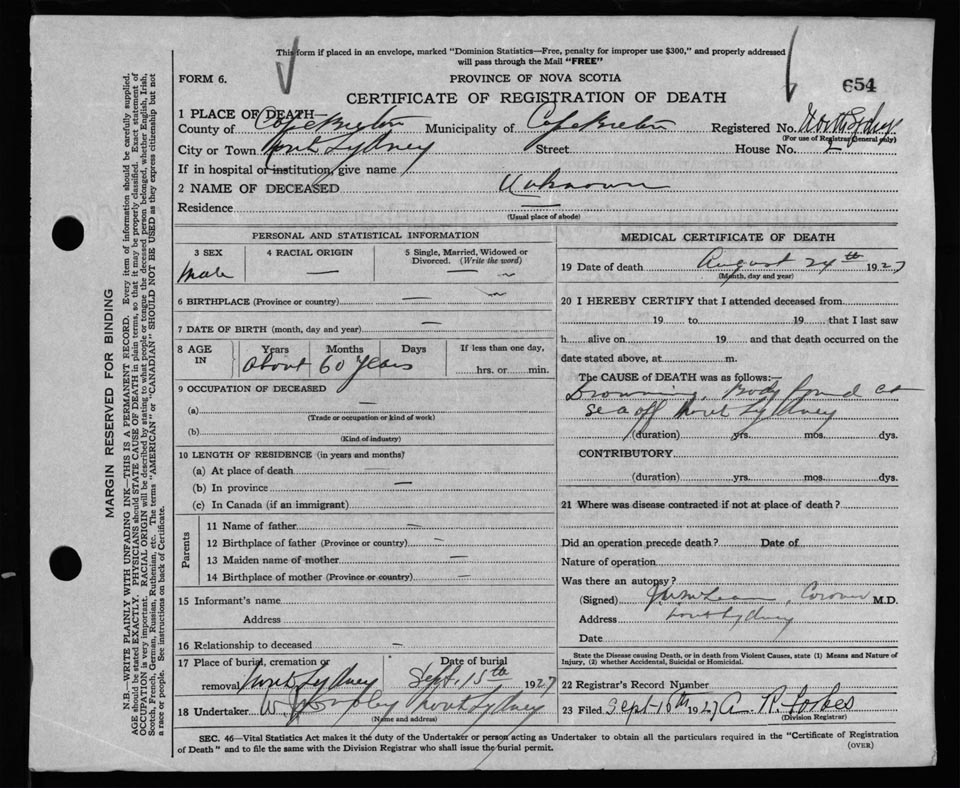 This form if placed in an envelope, marked "Dominion Statistics—Free, penalty for improper use $300," and properly addressed
will pass through the Mail "FREE"
FORM 6.
PROVINCE OF NOVA SCOTIA
654
CERTIFICATE OF REGISTRATION OF DEATH
1 PLACE OF DEATH—
County of Cape Breton Municipality of Cape Breton Registered No. North Sydney
(For use of Registrar General only)
City or Town North Sydney Street House No. 2
If in hospital or institution, give name
2 NAME OF DECEASED Unknown
Residence —
(Usual place of abode)
PERSONAL AND STATISTICAL INFORMATION
3 SEX 4 RACIAL ORIGIN 5 Single, Married, Widowed or Divorced. (Write the word)
Male — —
6 BIRTHPLACE (Province or country) —
7 DATE OF BIRTH (month, day and year) —
8 AGE IN Years Months Days If less than one day,
About 60 Years hrs. or min.
9 OCCUPATION OF DECEASED
(a) —
(Trade or occupation or kind of work)
(b)
(Kind of industry)
10 LENGTH OF RESIDENCE (in years and months)
(a) At place of death —
(b) In province —
(c) In Canada (if an immigrant)
Parents
11 Name of father —
12 Birthplace of father (Province or country) —
13 Maiden name of mother —
14 Birthplace of mother (Province or country) —
15 Informant's name
Address
16 Relationship to deceased —
17 Place of burial, cremation or Date of burial
removal North Sydney Sept. 15th 1927
18 Undertaker North Sydney
(Name and address)
MEDICAL CERTIFICATE OF DEATH
19 Date of death August 24th 1927
(Month, day and year)
20 I HEREBY CERTIFY that I attended deceased from
19 to 19 that I last saw
h alive on 19 and that death occurred on the
date stated above, at m.
The CAUSE OF DEATH was as follows:—
Drowning, Body found at
sea off North Sydney
(duration) yrs. mos. dys.
CONTRIBUTORY
(duration) yrs. mos. dys.
21 Where was disease contracted if not at place of death?
Did an operation precede death? Date of
Nature of operation
Was there an autopsy?
(Signed) Coroner M.D.
Address North Sydney
Date
State the Disease causing Death, or in death from Violent Causes, state (1) Means and Nature of
Injury, (2) whether Accidental, Suicidal or Homicidal.
22 Registrar's Record Number
23 Filed Sept 16th 1927 A. R. Forbes
(Division Registrar)
SEC. 46—Vital Statistics Act makes it the duty of the Undertaker or person acting as Undertaker to obtain all the particulars required in the "Certificate of Registration
of Death" and to file the same with the Division Registrar who shall issue the burial permit.
(OVER)
MARGIN RESERVED FOR BINDING
N.B.—WRITE PLAINLY WITH UNFADING INK—THIS IS A PERMANENT RECORD. Every item of information should be carefully supplied.
AGE should be stated EXACTLY. PHYSICIANS should STATE CAUSE OF DEATH in plain terms, so that it may be properly classified. Exact statement of
OCCUPATION is very important. RACIAL ORIGIN will be described by stating to what people or tongue the deceased person belonged, whether English, Irish,
Scotch, French, German, Russian, Ruthenian, etc. The terms "AMERICAN" or "CANADIAN" SHOULD NOT BE USED as they express citizenship but not
a race or people. See instructions on back of Certificate.